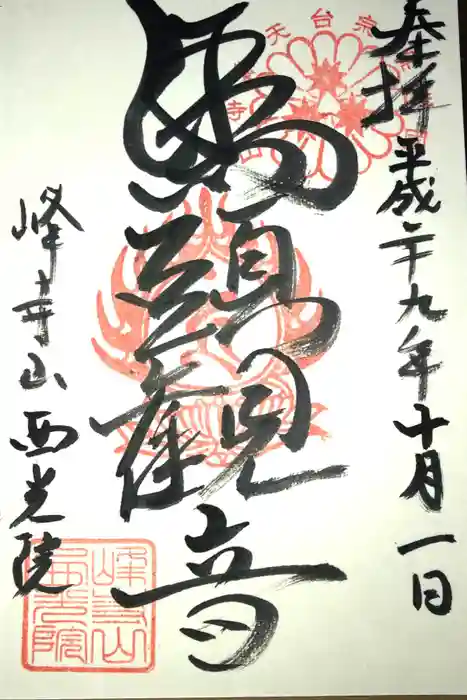 奉拝
平成二十九年十月一日
馬頭観音
峰寺山西光院
天台宗
峰寺山
西光院